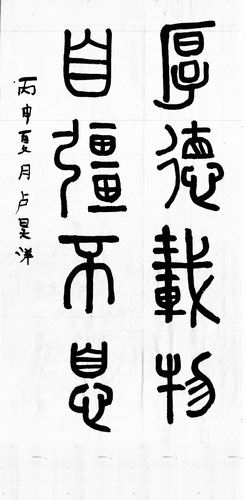 厚德載物
自彊不息
丙申夏月卢昊洋